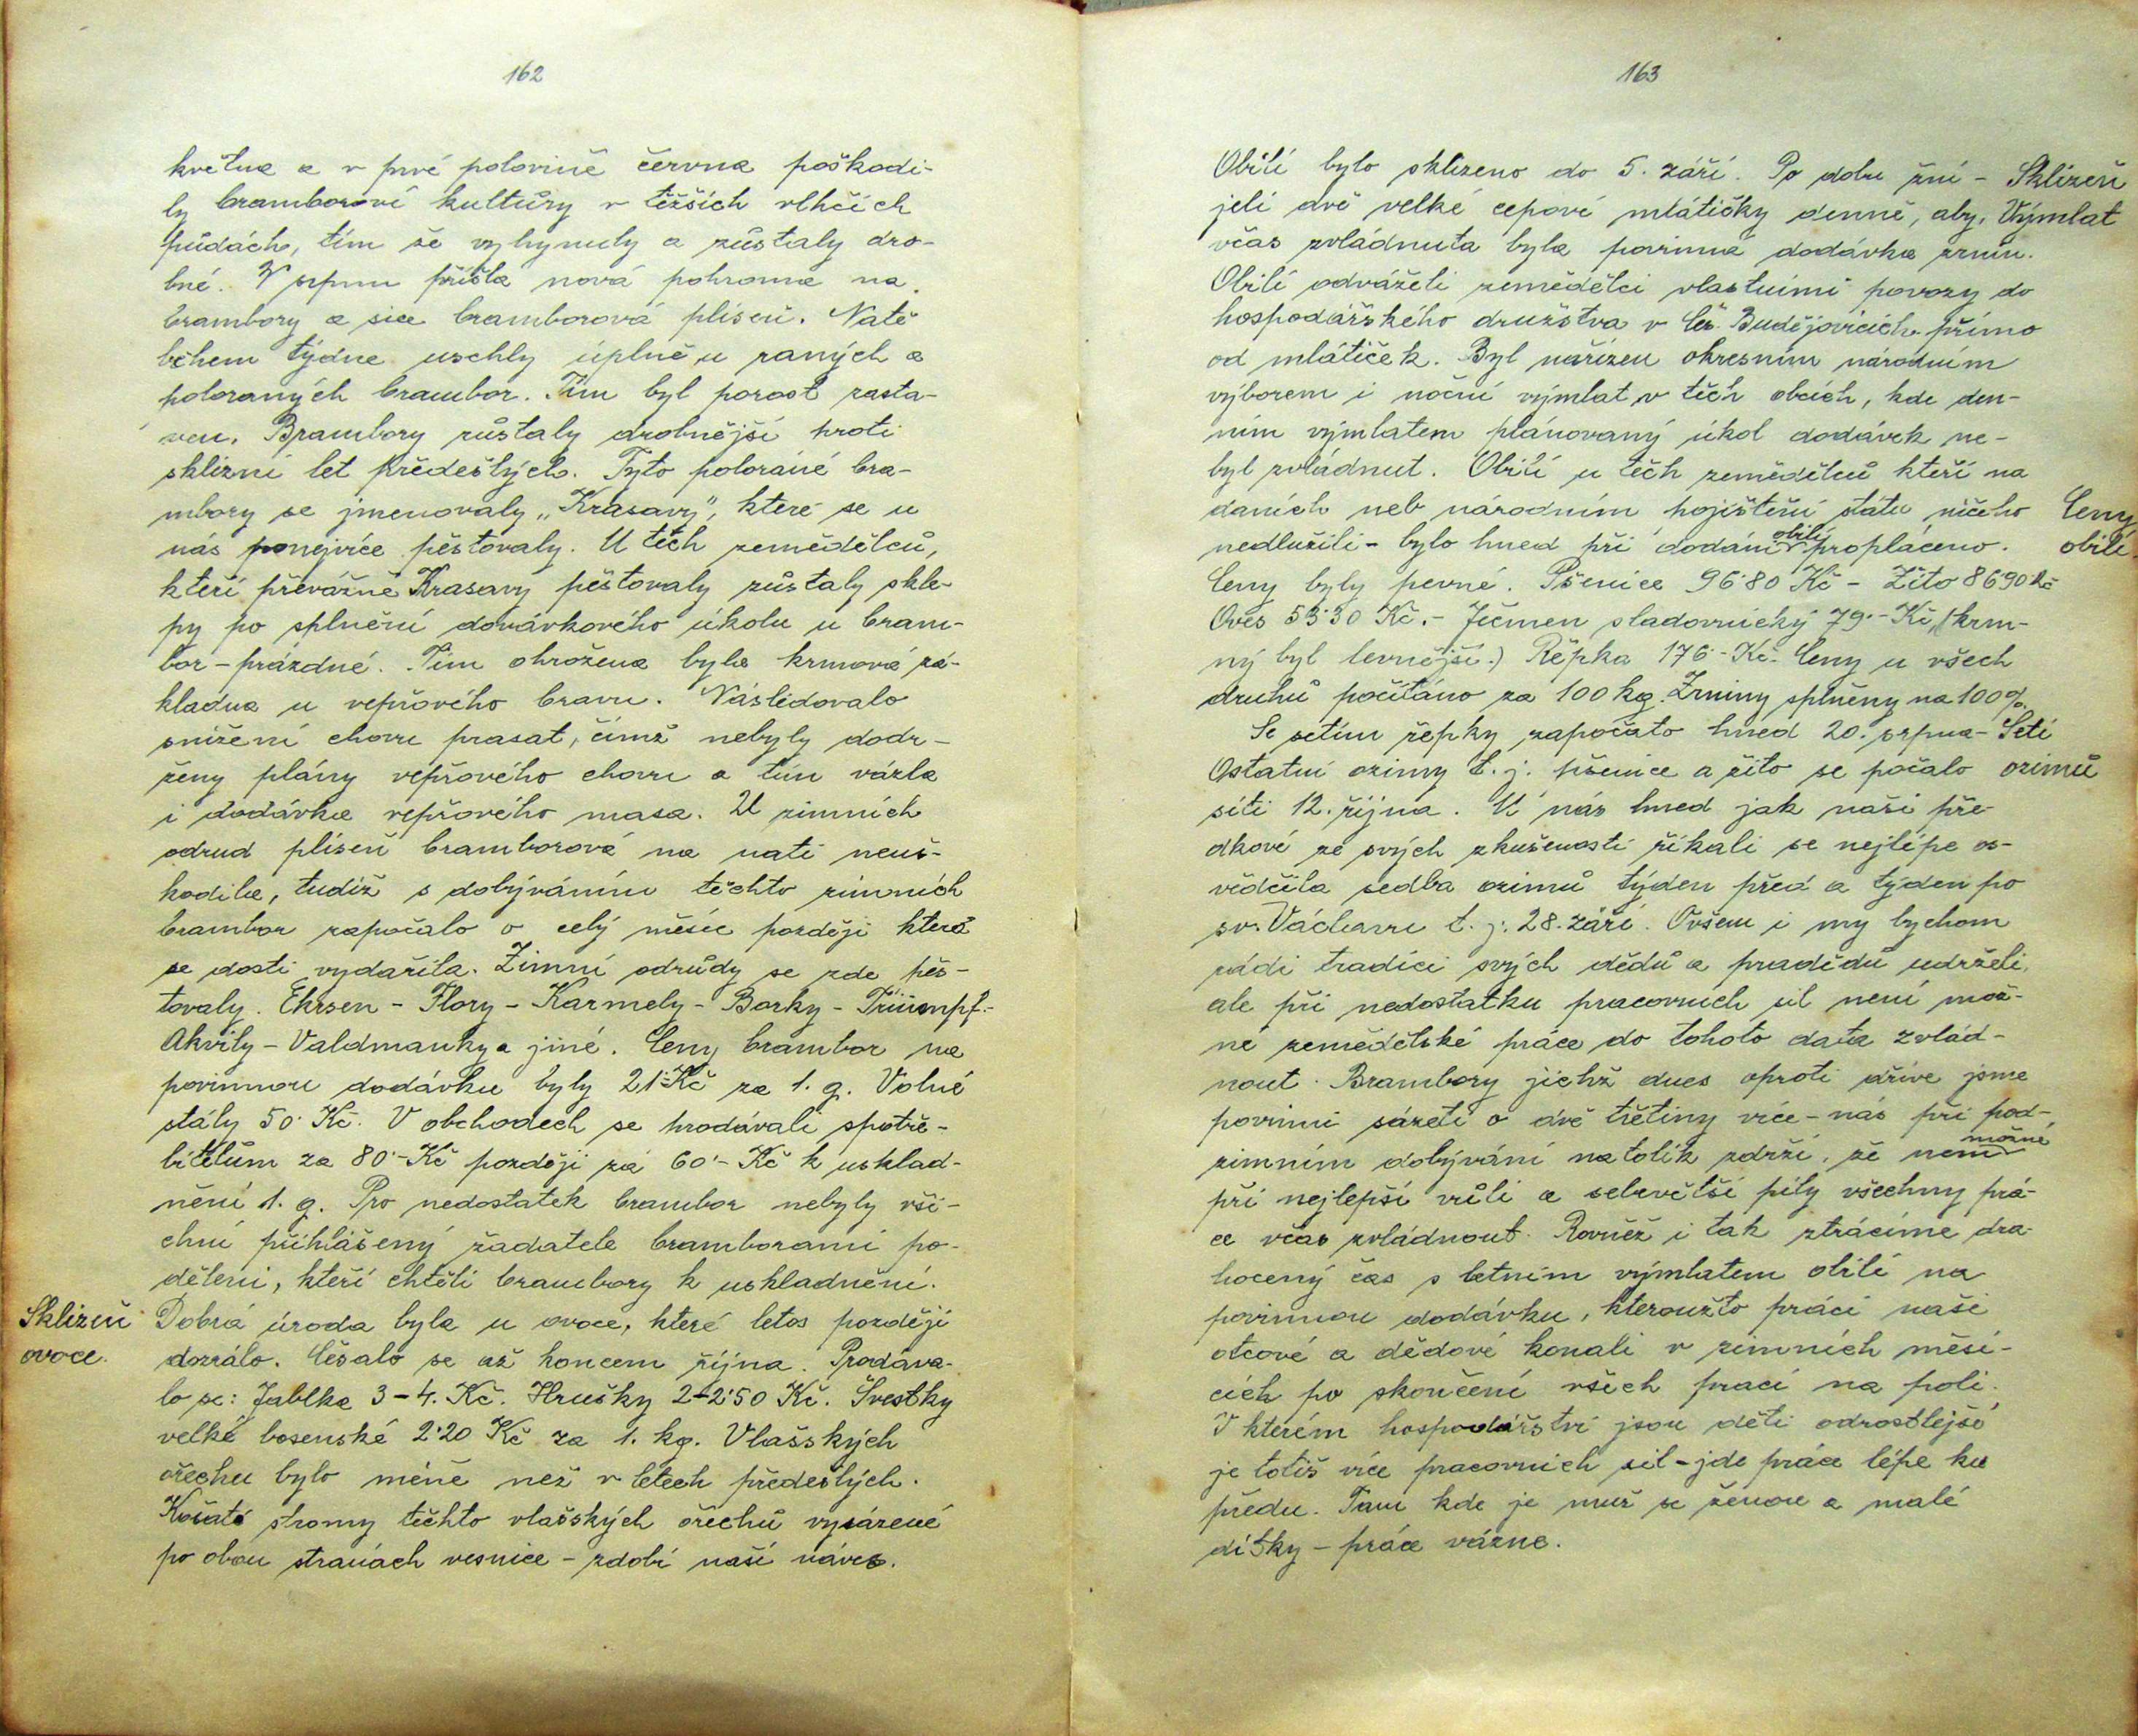 162
května a v prvé polovině června poškodi-
ly bramborové kultůry v těžších vlhčích
půdách, tím že vyhynuly a zůstaly dro-
bné. V srpnu přišla nová pohroma na
brambory a sice bramborová plíseň. Natě
během týdne uschly úplně u raných a
poloraných brambor. Tím byl porost zasta-
ven. Brambory zůstaly drobnější proti
sklizni let předešlých. Tyto polorané bra-
mbory se jmenovaly „Krasavy", které se u
nás ponejvíce pěstovaly. U těch zemědělců,
kteří převážně Krasavy pěstovaly zůstaly skle-
py po splnění dodávkového úkolu u bram-
bor - prázdné. Tím ohrožena byla krmová zá-
kladna u vepřového bravu. Následovalo
snížení chovu prasat, čímž nebyly dodr-
ženy plány vepřového chovu a tím vázla
i dodávka vepřového masa. U zimních
odrud plíseň bramborová na nati neuš-
kodila, tudíž s dobýváním těchto zimních
brambor započalo o celý měsíc později která
se dosti vydařila. Zimní odrůdy se zde pěs-
tovaly. Ekrsen - Flory - Karmely - Borky - Triumpf.-
Akvily - Valdmanky a jiné. Ceny brambor na
povinnou dodávku byly 21·- Kč za 1. q. Volné
stály 50 Kč. V obchodech se prodávali spotře-
bitelům za 80·- Kč později za 60·- Kč k usklad-
nění 1. q. Pro nedostatek brambor nebyly vši-
chni přihlášený žadatele bramborami po-
děleni, kteří chtěli brambory k uskladnění.
Sklizeň
ovoce.
Dobrá úroda byla u ovoce, které letos později
dozrálo. Česalo se až koncem října. Prodáva-
lo se: Jablka 3-4. Kč. Hrušky 2-2'50 Kč. Švestky
velké bosenské 2'20 Kč za 1. kg. Vlašských
ořechu bylo méně než v letech předešlých.
Košaté stromy těchto vlašských ořechů vysázené
po obou stranách vesnice - zdobí naší náves.
163
Obilí bylo sklizeno do 5. září. Po dobu žní -
Sklizeň
jeli dvě velké cepové mlátičky denně, aby,
Výmlat
včas zvládnuta byla povinná dodávka zrnin.
Obilí odváželi zemědělci vlastními povozy do
hospodářského družstva v Čes. Budějovicích přímo
od mlátiček. Byl nařízen okresním národním
výborem i noční výmlat v těch obcích, kde den-
ním výmlatem plánovaný úkol dodávek ne-
byl zvládnut. Obilí u těch zemědělců kteří na
daních neb národním pojištění státu ničeho
Ceny
obilí.
nedlužili - bylo hned při dodání obilí propláceno.
Ceny byly pevné. Pšenice 96'80 Kč - Žito 86'90 Kč
Oves 53'30 Kč. - Ječmen sladovnický 79.- Kč, (krm-
ný byl levnější.) Řepka 176·- Kč. Ceny u všech
druhů počítáno za 100 kg. Zrniny splněny na 100%.
Se setím řepky započato hned 20. srpna -
Setí
ozimů
Ostatní ozimy t. j. pšenice a žito se počalo
síti 12. října. U nás hned jak naši pře-
dkové ze svých zkušeností říkali se nejlépe os-
vědčila sedba ozimů týden před a týden po
sv. Václavu t. j. 28. září. Ovšem i my bychom
rádi tradici svých dědů a pradědů udrželi,
ale při nedostatku pracovních sil není mož-
né zemědělské práce do tohoto data zvlád-
nout. Brambory jichž dnes oproti dříve jsme
povinni sázeti o dvě třetiny více - nás při pod-
zimním dobývání natolik zdrží, že není možné
při nejlepší vůli a sebevětší píly všechny prá-
ce včas zvládnout. Rovněž i tak ztrácíme dra-
hocený čas s letním výmlatem obilí na
povinnou dodávku, kteroužto práci naši
otcové a dědové konali v zimních měsí-
cích po skončení všech prací na poli.
V kterém hospodářství jsou děti odrostlejší
je totiž více pracovních sil - jde práce lépe ku
předu. Tam kde je muž se ženou a malé
dítky - práce vázne.